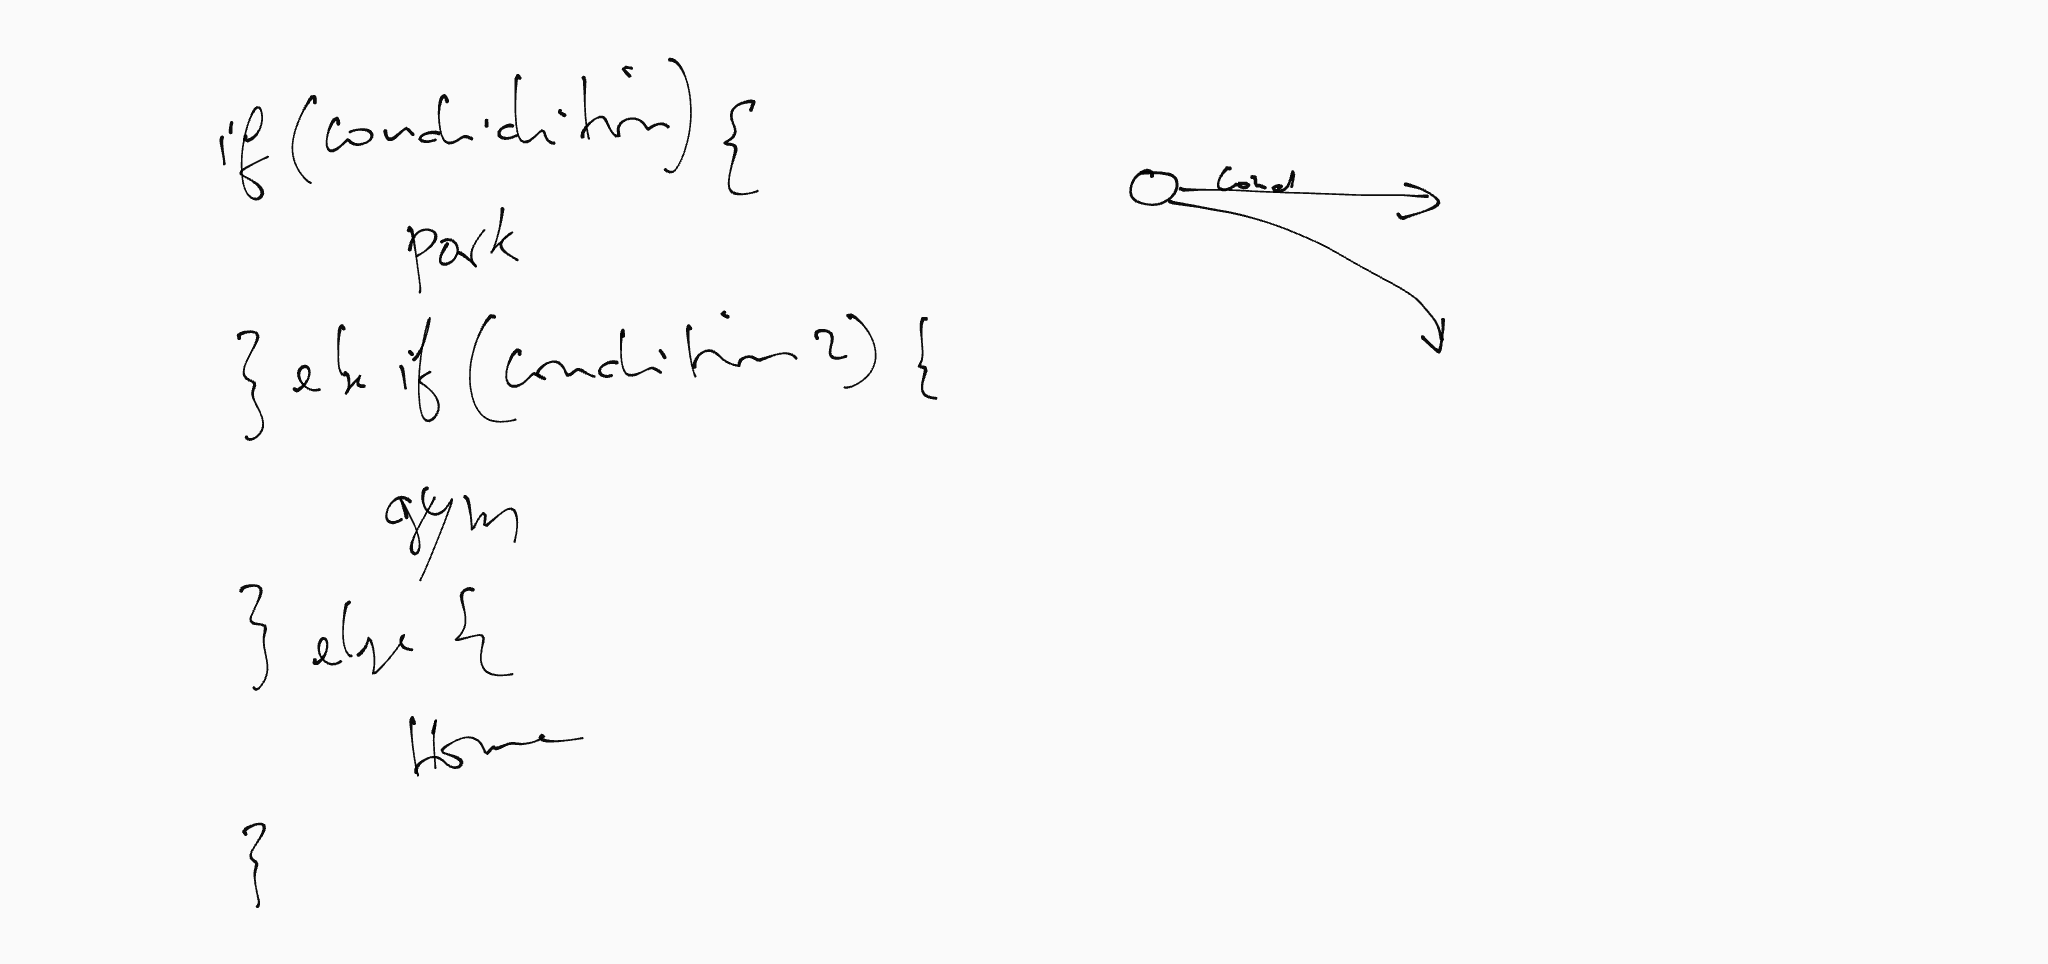 if (condidition) {
park
} else if (condition 2) {
gym
} else {
Home
}
Cond